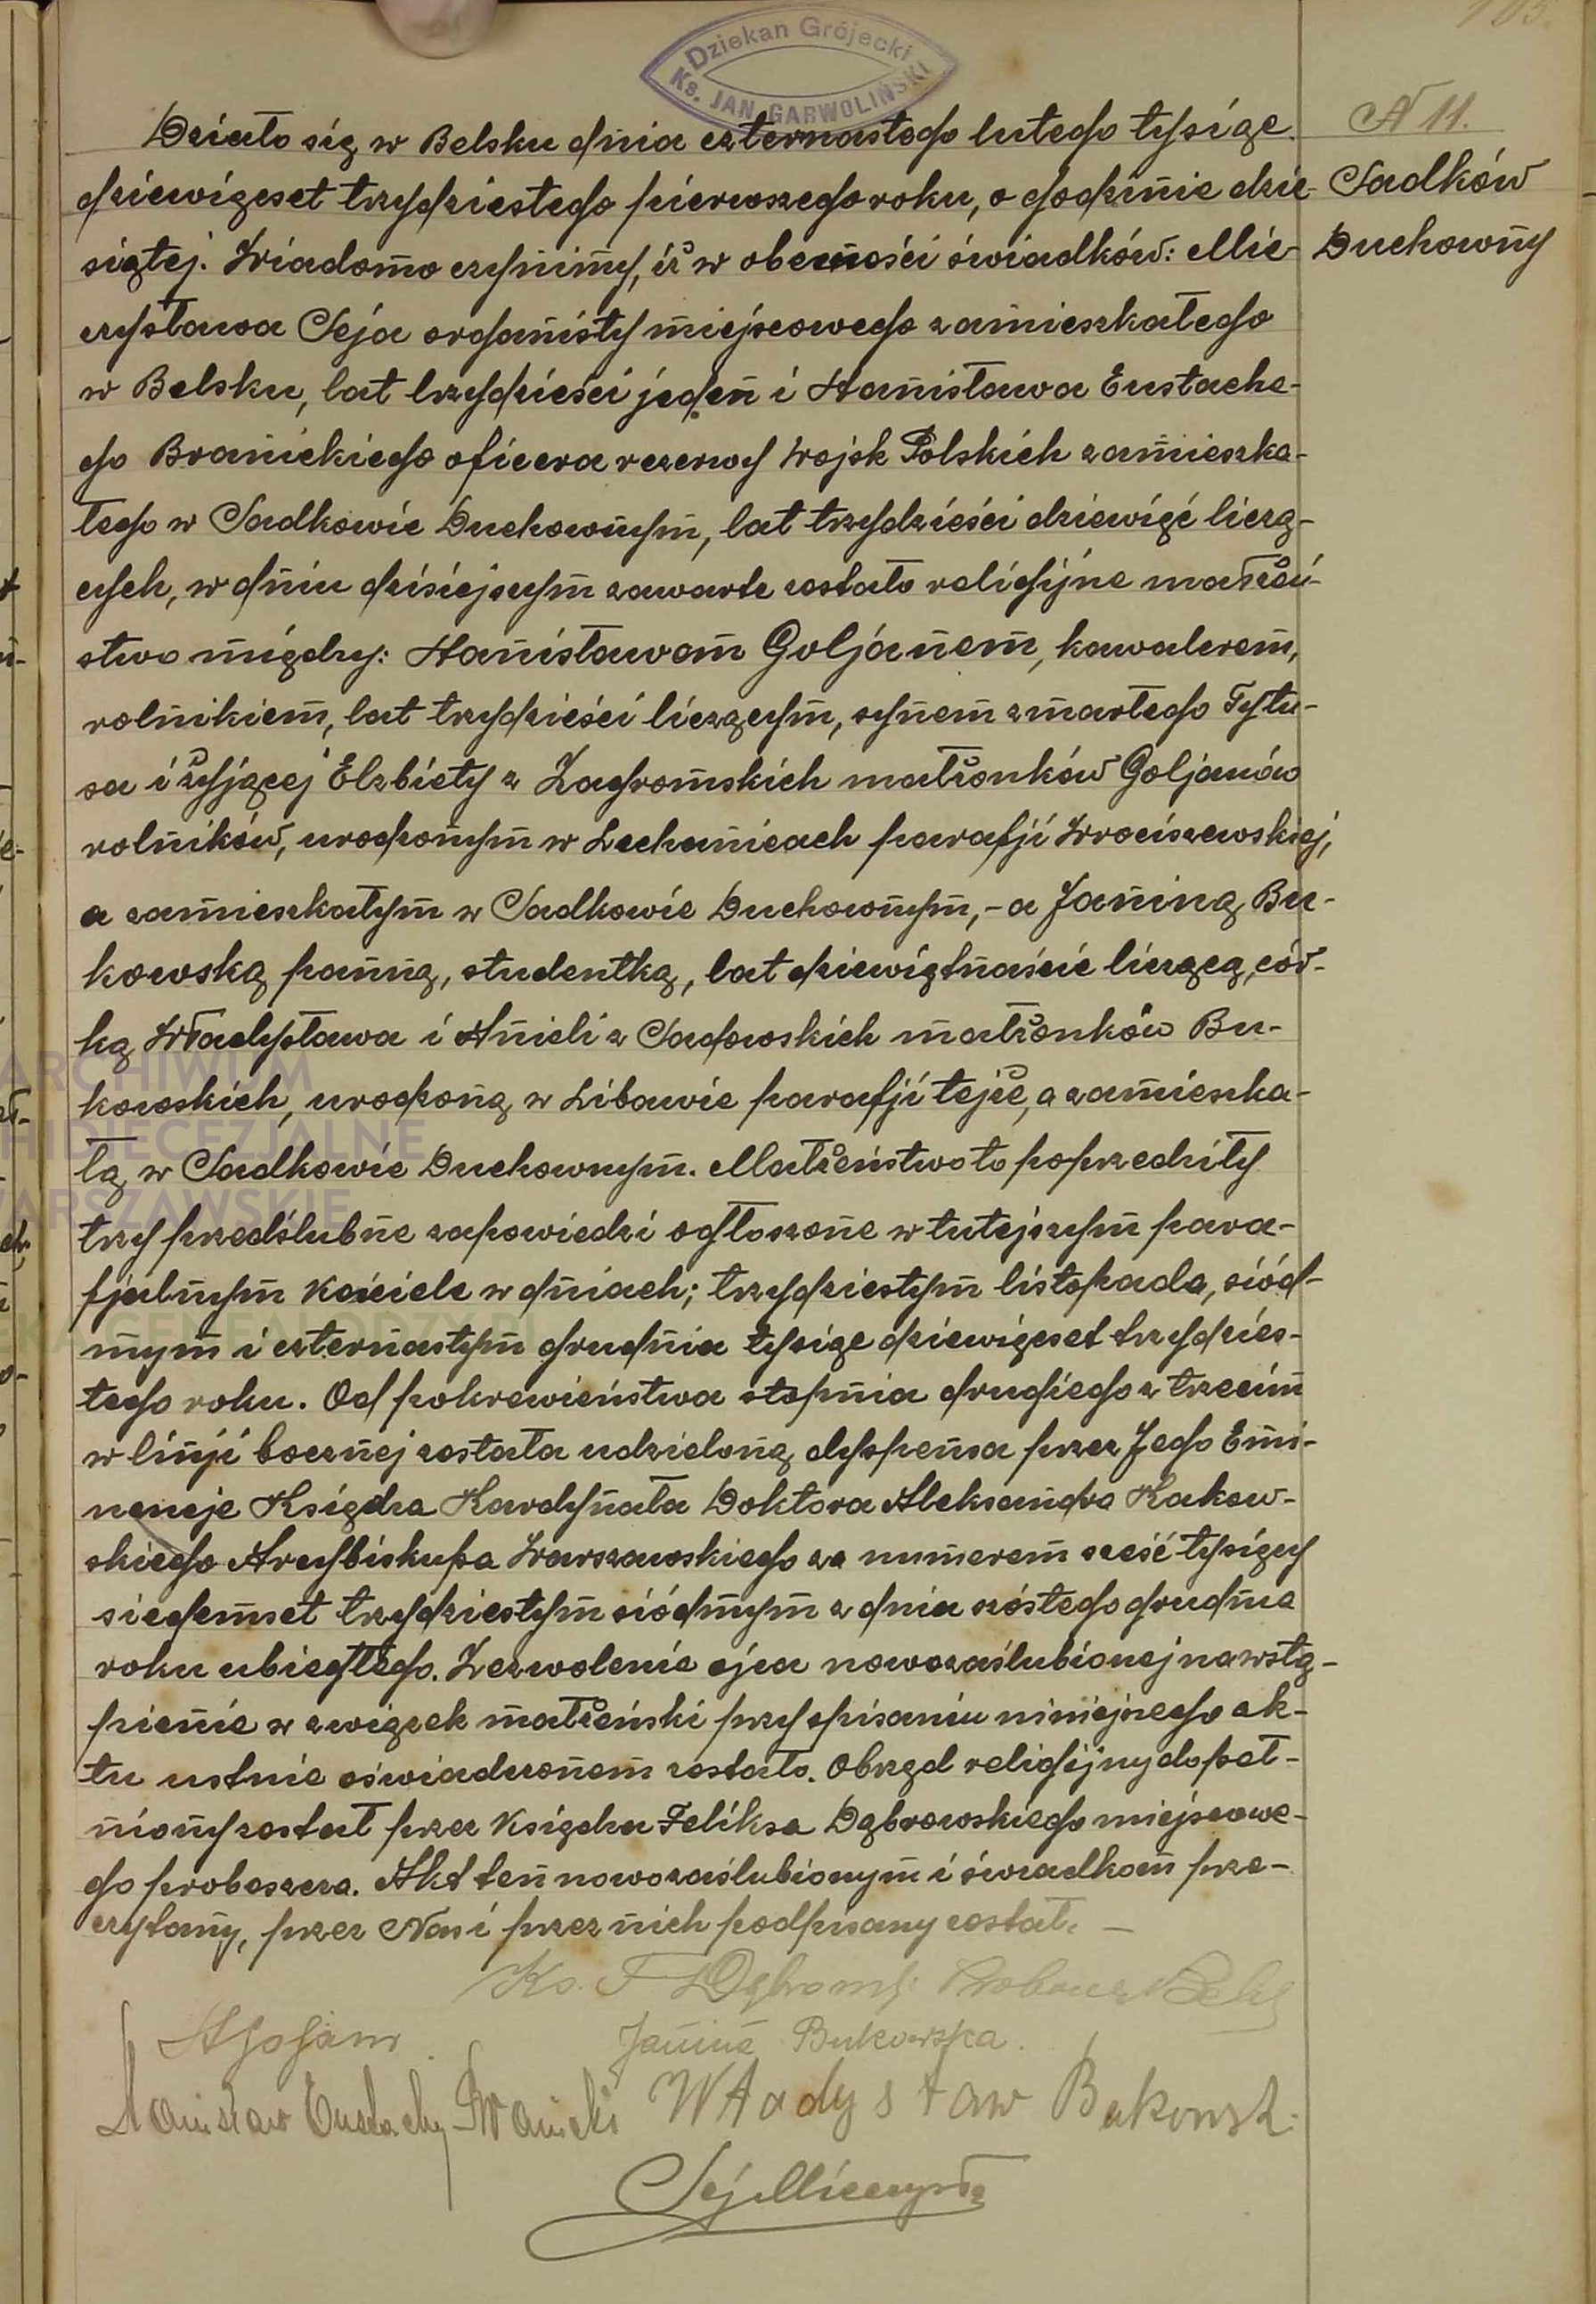 105.
Dziekan Grójecki
Ks. JAN GARWOLIŃSKI
N 11.
Sadków
Duchowny
Działo się w Belsku dnia czternastego lutego tysiąc
dziewięcset trzydziestego pierwszego roku, o godzinie dzie-
siątej. Wiadomo czynimy, iż w obecności świadków: Mie-
czysława Seja organisty miejscowego zamieszkałego
w Belsku, lat trzydzieści jeden i Stanisława Eustache-
go Branickiego oficera rezerwy Wojsk Polskich zamieszka-
łego w Sadkowie Duchownym, lat trzydzieści dziewięć liczą-
cych, w dniu dzisiejszym zawarte zostało religijne małżeń-
stwo między: Stanisławem Goljanem, kawalerem,
rolnikiem, lat trzydzieści liczącym, synem zmarłego Tytu-
sa i żyjącej Elzbiety z Zagromskich małżonków Goljanów
rolników, urodzonym w Lechanicach parafji Wrociszewskiej,
a zamieszkałym w Sadkowie Duchownym, - a Janiną Bu-
kowską panną, studentką, lat dziewiętnaście liczącą, cór-
ką Władysława i Anieli z Sadowskich małżonków Bu-
kowskich, urodzoną w Libawie parafji tejże, a zamieszka-
łą w Sadkowie Duchownym. Małżeństwo to poprzedziły
trzy przedślubne zapowiedzi ogłoszone w tutejszym para-
fjalnym Kościele w dniach; trzydziestym listopada, siód-
mym i czternastym grudnia tysiąc dziewięcset trzydzies-
tego roku. Od pokrewieństwa stopnia drugiego z trzecim
w linji bocznej została udzieloną dyspensa przez Jego Emi-
nencje Księdza Kardynała Doktora Aleksandra Kakow-
skiego Arcybiskupa Warszawskiego za numerem sześć tysięcy
siedemset trzydziestym siódmym z dnia szóstego grudnia
roku ubiegłego. Zezwolenie ojca nowozaślubionej na wstą-
pienie w związek małżeński przy spisaniu niniejszego ak-
tu ustnie oświadczonem zostało. Obrząd religijny dopeł-
niony został przez Księdza Feliksa Dąbrowskiego miejscowe-
go proboszcza. Akt ten nowozaślubionym i świadkom prze-
czytany, przez Nas i przez nich podpisany został. —
Ks. F Dąbrowski Proboszcz Belsk
StGoljan Janina Bukowska.
Stanisław Eustachy Branicki Władysław Bukowsk
Sej Mieczysła
ARCHIWUM
HIDIECEZJALNE
WARSZAWSKIE